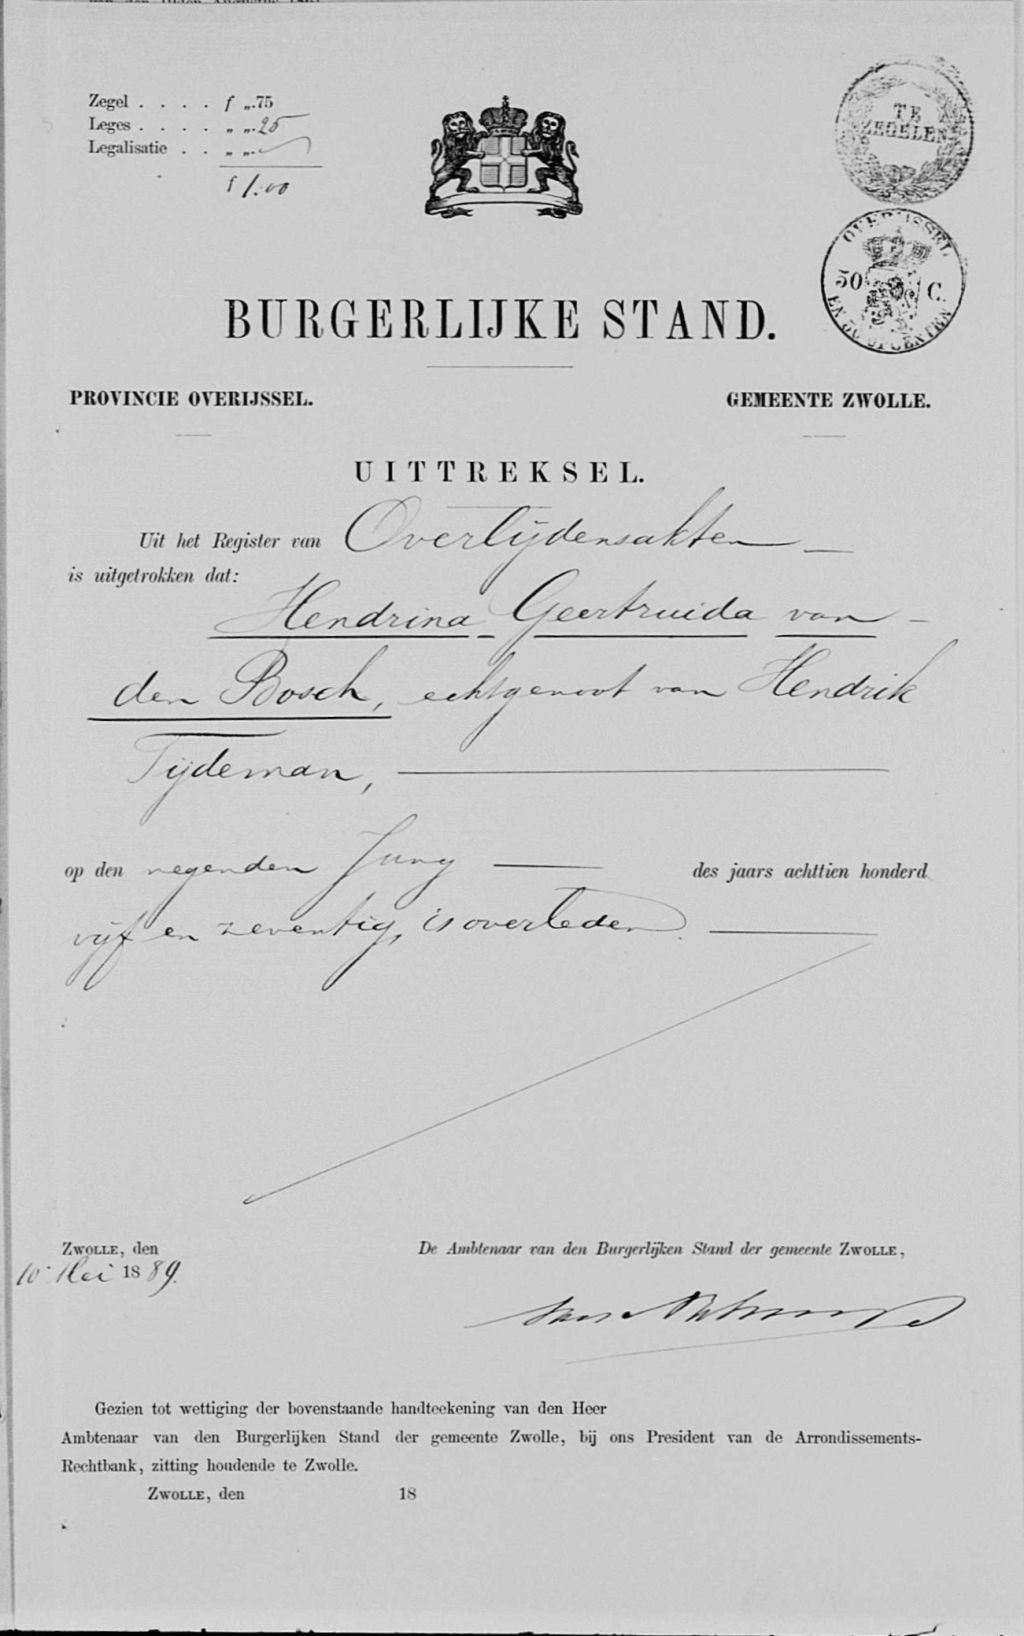 Zegel . . . . f „.75
Leges . . . . „ „.25
Legalisatie . . „ „.
f 1.00
TE
ZEGELEN
OVERIJSSEL
50 C.
EN 38 OPCENTEN
BURGERLIJKE STAND.
PROVINCIE OVERIJSSEL. GEMEENTE ZWOLLE.
UITTREKSEL.
Uit het Register van Overlijdensakten
is uitgetrokken dat:
Hendrina Geertruida van
den Bosch, echtgenoot van Hendrik
Tijdeman,
op den negenden Juny des jaars achttien honderd
vijf en zeventig, is overleden.
ZWOLLE, den De Ambtenaar van den Burgerlijken Stand der gemeente ZWOLLE,
10 Mei 1889.
Gezien tot wettiging der bovenstaande handteekening van den Heer
Ambtenaar van den Burgerlijken Stand der gemeente Zwolle, bij ons President van de Arrondissements-
Rechtbank, zitting houdende te Zwolle.
ZWOLLE, den 18